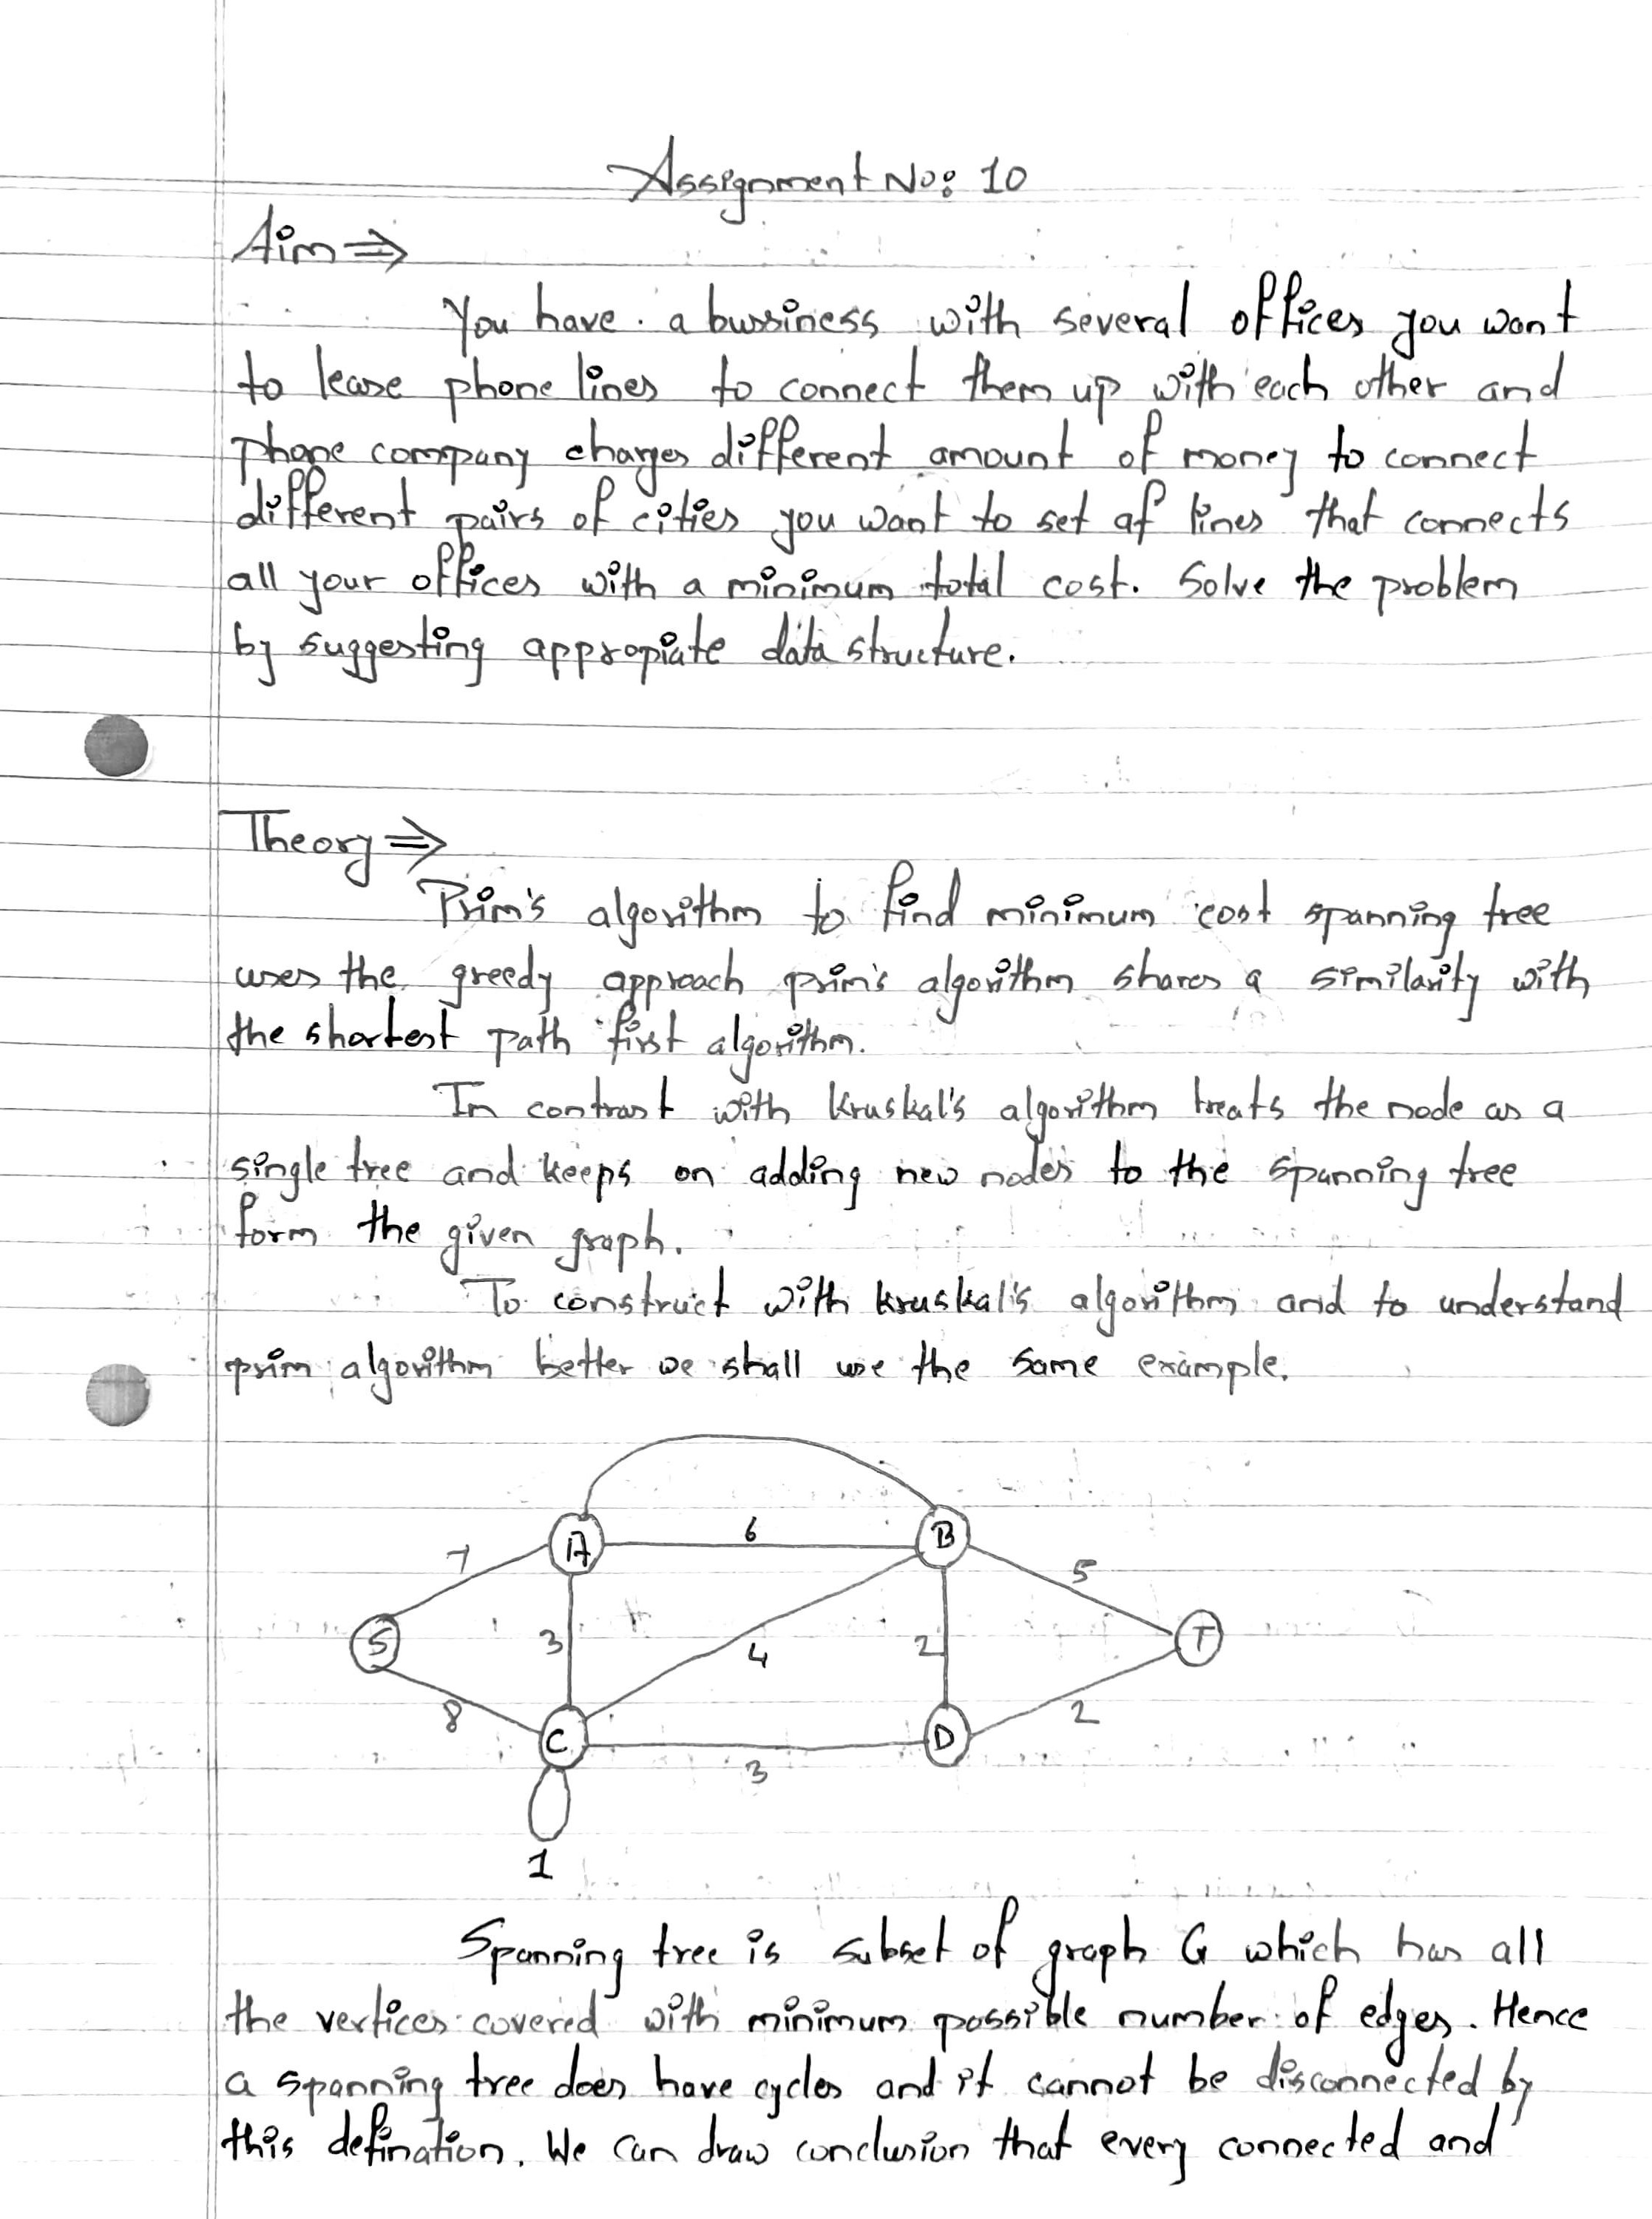 Assignment No: 10
Aim ⇒
You have a bussiness with several offices you want
to lease phone lines to connect them up with each other and
phone company charges different amount of money to connect
different pairs of cities you want to set of lines that connects
all your offices with a minimum total cost. Solve the problem
by suggesting appropiate data structure.
Theory ⇒
Prim's algorithm to find minimum cost spanning tree
uses the greedy approach prim's algorithm shares a similarity with
the shortest path first algorithm.
In contrast with Kruskal's algorithm treats the node as a
single tree and keeps on adding new nodes to the spanning tree
form the given graph.
To construct with kruskal's algorithm and to understand
prim algorithm better we shall use the same example.
A 6 B
7 5
S 3 4 2 T
8 2
C 3 D
1
Spanning tree is subset of graph G which has all
the vertices covered with minimum possible number of edges. Hence
a spanning tree does have cycles and it cannot be disconnected by
this defination. We can draw conclusion that every connected and